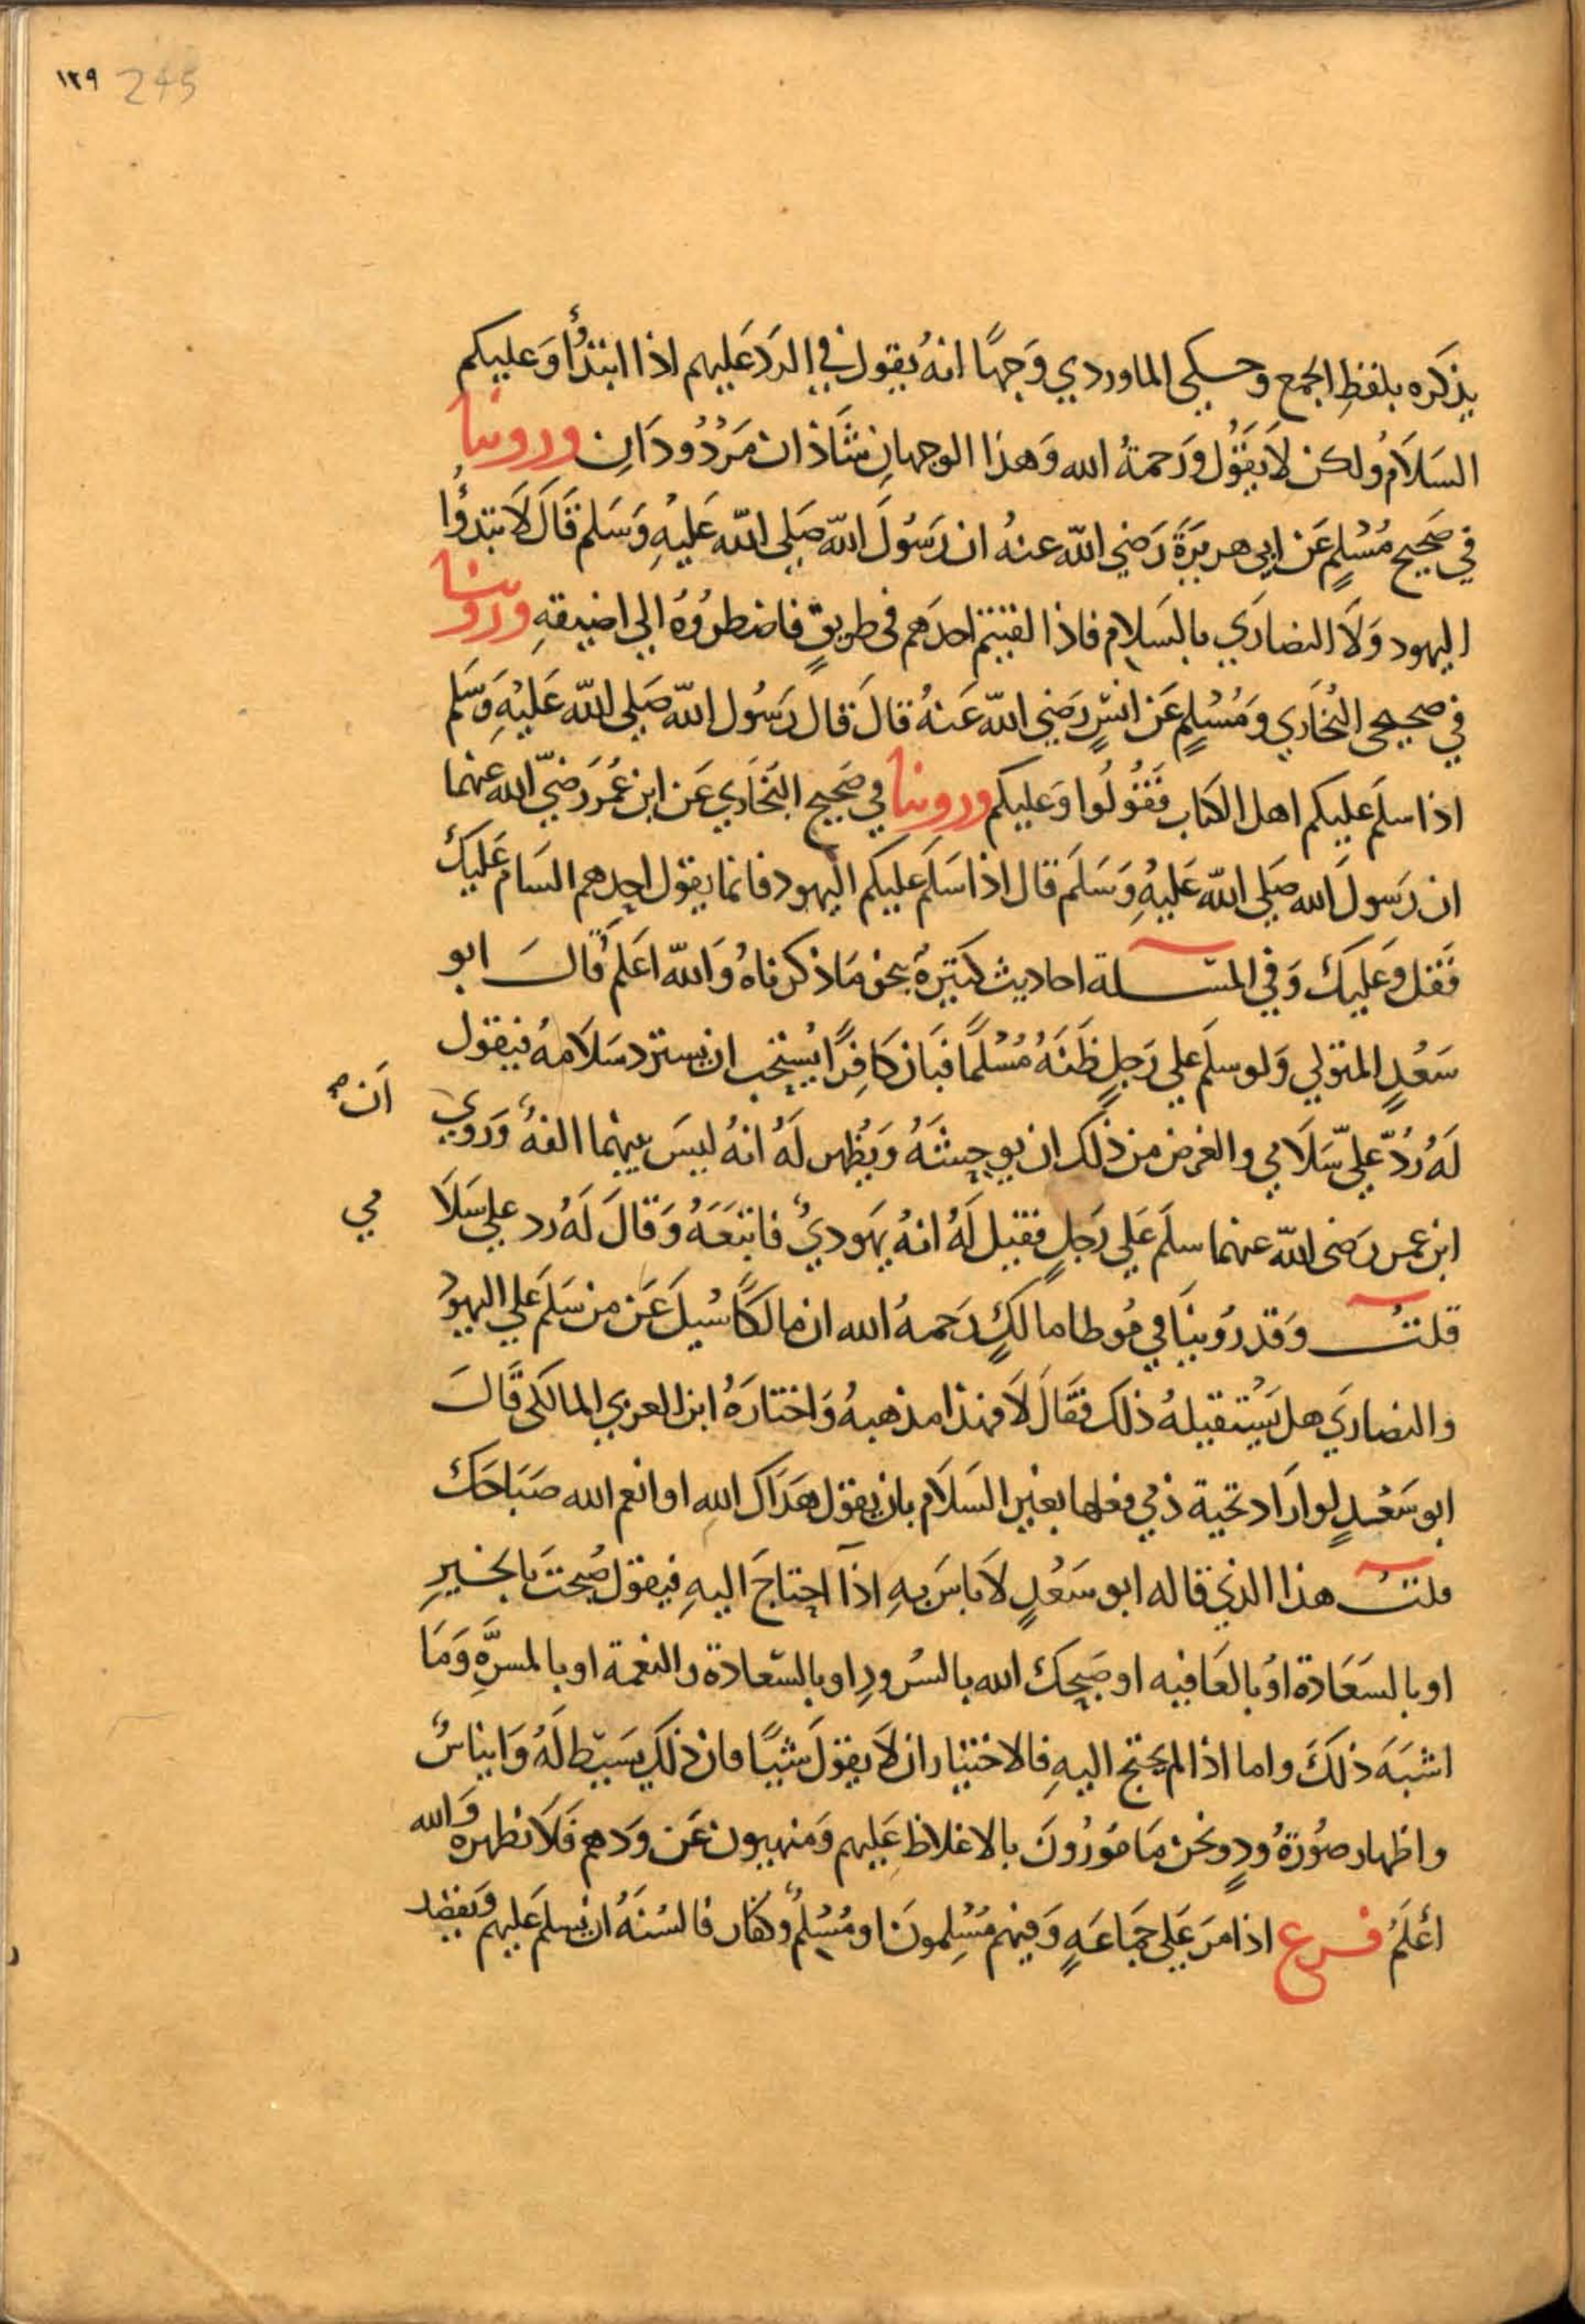 ١٢٩ 245
يذكره بلفظِ الجمع وحكى الماوردي وَجهًا انهُ يقول في الردّ عَليهم اذا ابتدؤا وَعليكم
السَلاَمُ ولكن لاَ يَقُول وَرَحمةُ الله وَهذا الوجهانِ شَاذان مَرْدُودَانِ وروينا
في صَحِيح مُسْلِمٍ عَن ابي هريرَةَ رَضي الله عنهُ ان رَسُولَ الله صَلى الله عَليْهِ وَسَلم قَالَ لاَ تبتدؤُا
اليهود وَلاَ النصَارَي بالسَلام فاذا لقيتم احدَهم في طريقٍ فاضطرُوُهُ الي اضيقهِ وروينا
في صحيحى البُخَاري وَمُسْلِمٍ عَن انسٍ رَضي الله عَنهُ قالَ قال رَسُول الله صَلى الله عَليْهِ وَسَلم
اذا سلمَ عليكم اهل الكتاب فَقُولُوا وَعليكم وروينا في صَحِيح البُخَاري عَن ابن عُمَرَ رَضيَ الله عنهما
ان رَسولَ الله صَلى الله عَليهِ وَسَلمَ قال اذا سَلمَ عليكم اليهود فانما يقول احدهم السَام عَليكَ
فقل وَعَليكَ وَفي المسـٔـلة احاديث كثيرةٌ بنحو مَا ذكرناهُ وَالله اعَلم قَالَ ابو
سَعْدٍ المتولي وَلو سلمَ علي رَجلٍ ظنَهُ مُسْلمًا فبَان كَافِرًا يُستحب ان يسترد سَلاَمهُ فيقول
لَهُ رُدّ عَلىّ سَلاَمي والغرض من ذلك ان يوحِشَهُ وَيُظهر لَهُ انهُ ليسَ بينهما الفهٌ وَرَوي اَن صح
ابن عمر رَضى الله عنهما سلمَ عَلي رَجلٍ فقيل لَهُ انهُ يَهوديٌ فاتبَعَهُ وَقالَ لَهُ رد علي سَلاَ مي
قلتُ وَقد رُوينَا في مُوطا مالكٍ رَحمهُ الله ان مالكًا سُيلَ عَن من سَلمَ عَلي اليهوُد
والنصَاريَ هل يَستقيلهُ ذلك فقَالَ لاَ فهذا مذهبهُ وَاختارَهُ ابن العربي المالكى قَالَ
ابو سَعْدٍ لو ارَاد تحية ذمي فعلها بغير السَلاَم بان يقول هَدَاك اللهِ او انعم الله صَبَاحَكَ
قلتُ هذا الذي قاله ابو سَعْدٍ لاَ باسَ بهِ اذا احتاجَ اليهِ فيقول صُبحتَ بالخيرِ
او بالسَعَادة اوُ بالعَافيه او صَبحكَ الله بالسُرورِ او بالسَعادة والنعمة او بالمسرَّةِ وَمَا
اشبَهَ ذلكَ واما اذا لم يحتج اليهِ فالاختيار ان لاَ يقولَ شيًا فان ذلك بَسَيط لَهُ وَايناسٌ
واظهار صُورَةُ ودٍ ونحن مَامُورُونَ بالاغلاظ عَليهم وَمنهييون عَن وَدهم فَلاَ نظهره وَالله
اعْلَمُ فـرع اذا مرَ عَلي جَمَاعَهٍ وَفيهم مُسْلِمونَ او مُسْلِمٌ وكفار فالسُنهُ ان يسلمَ عَليهم وَيقصد